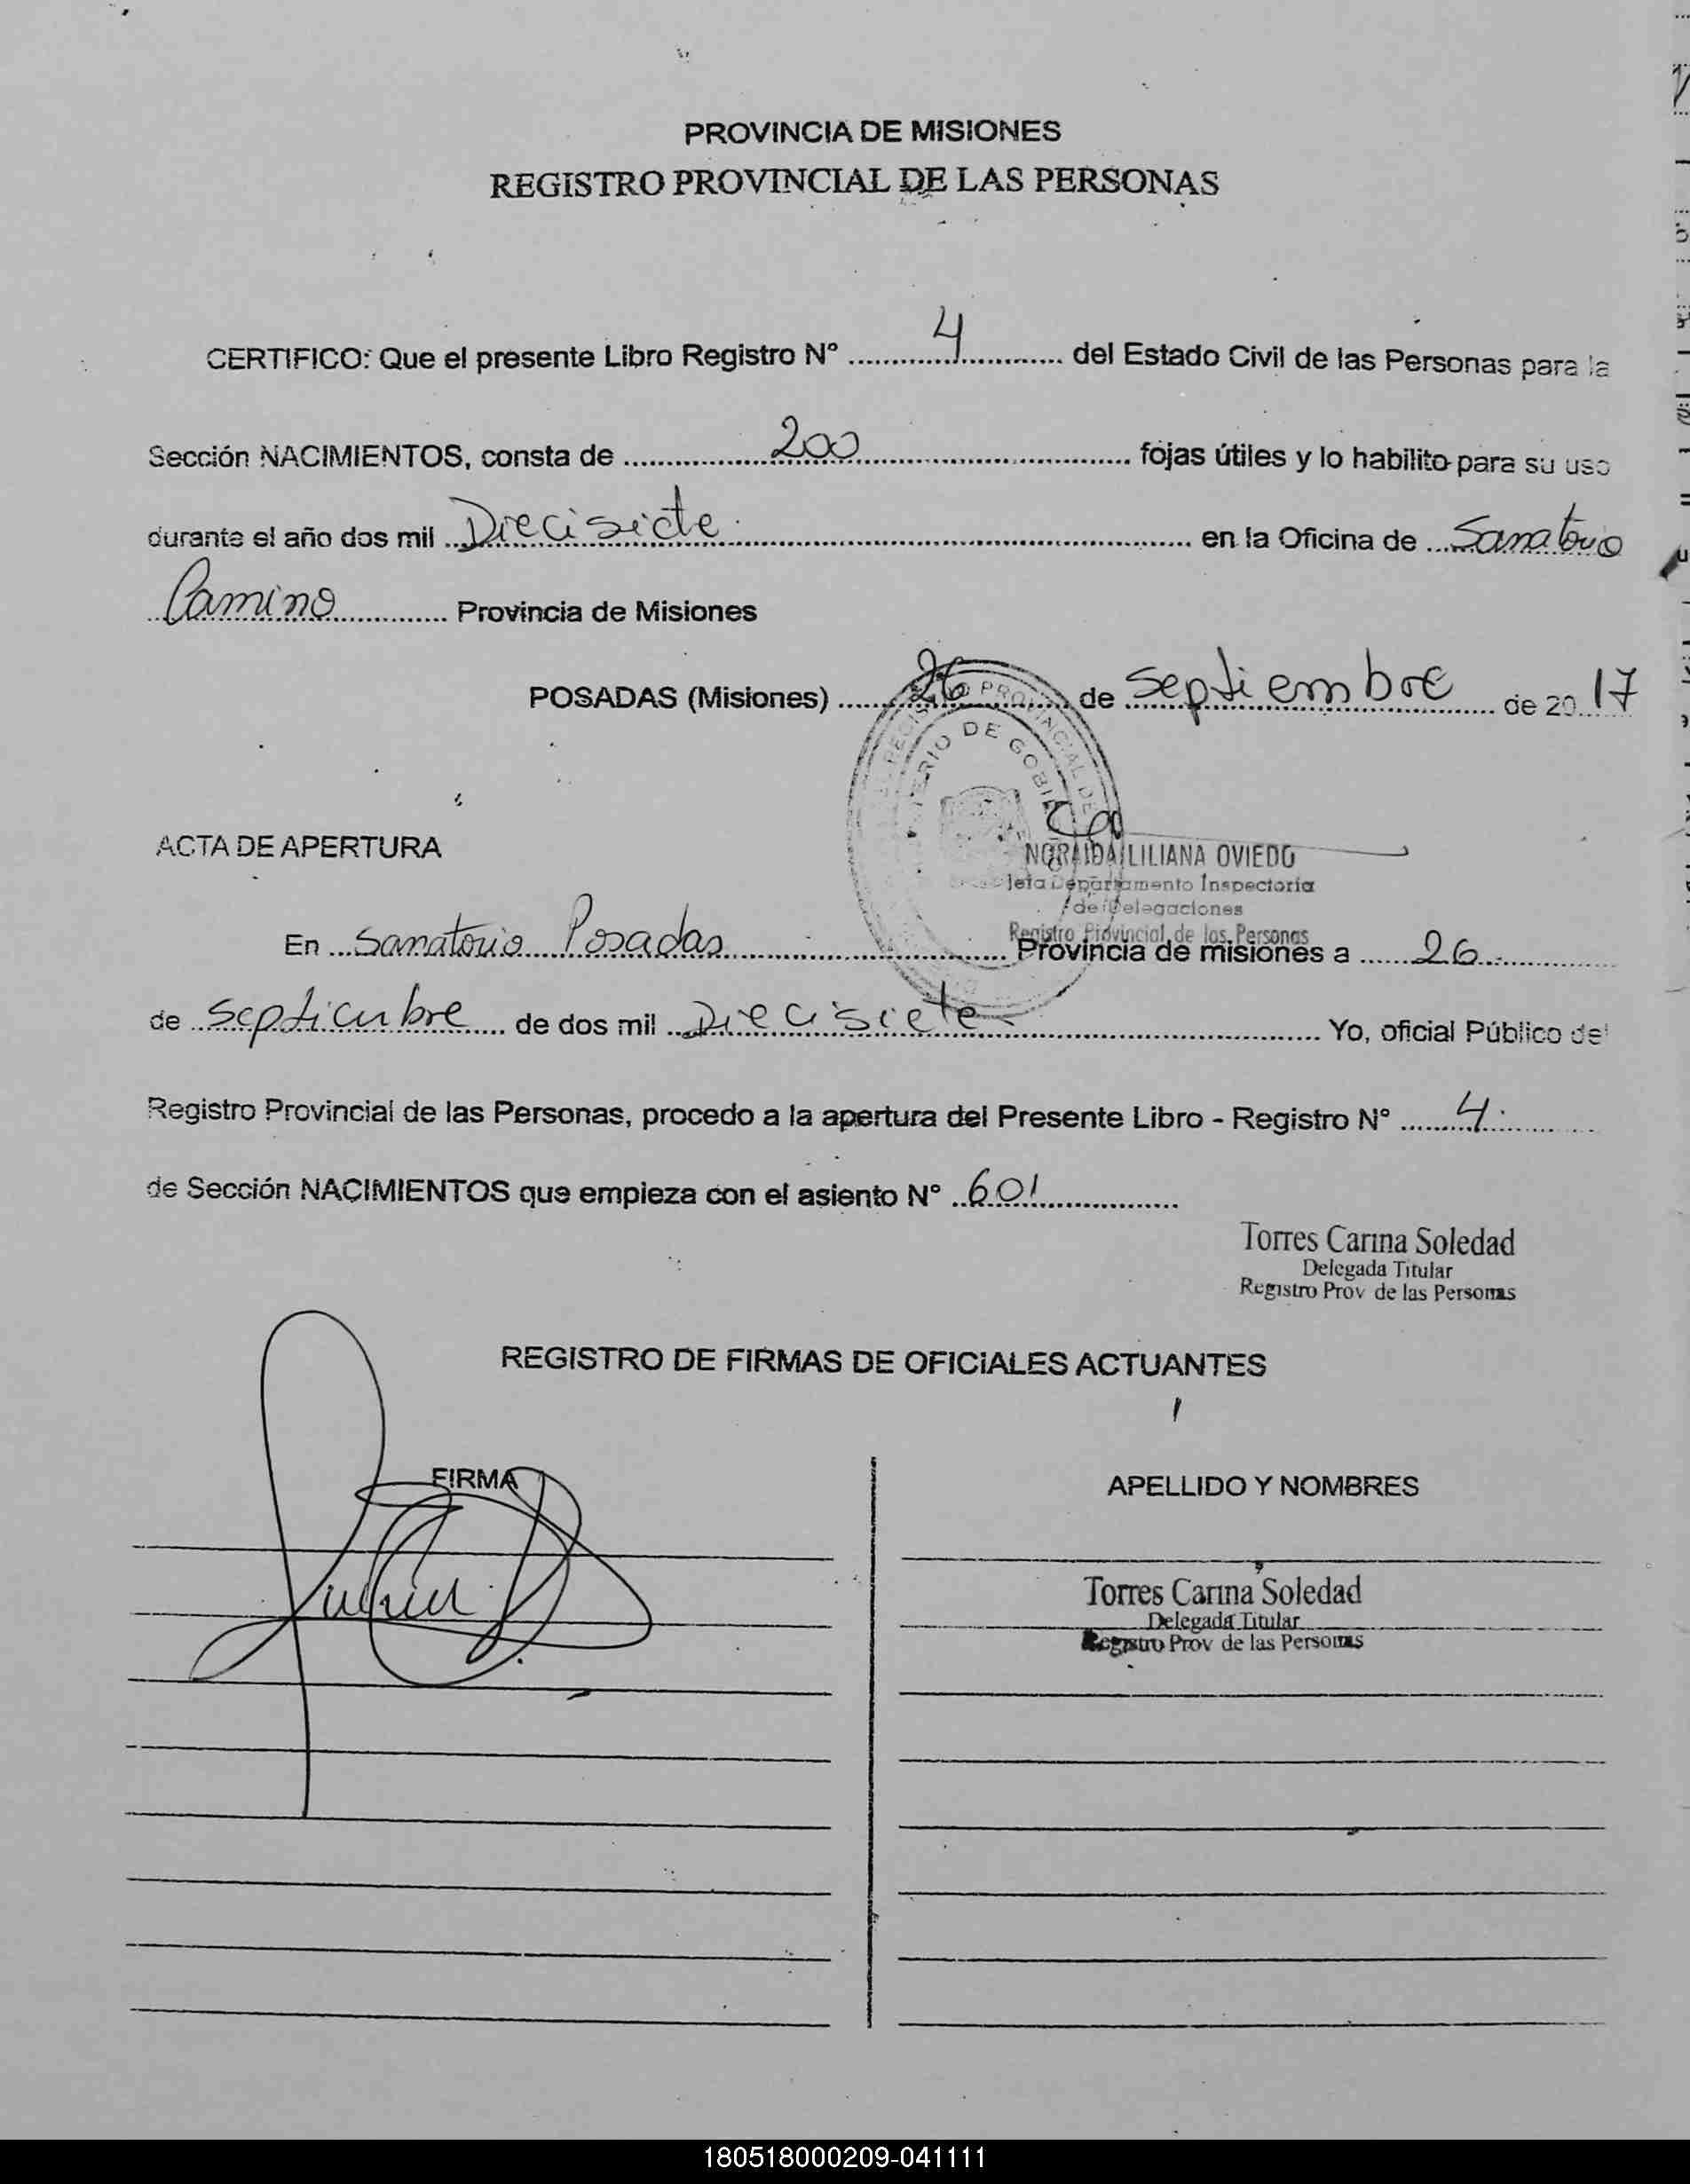 PROVINCIA DE MISIONES
REGISTRO PROVINCIAL DE LAS PERSONAS
CERTIFICO: Que el presente Libro Registro Nº 4 del Estado Civil de las Personas para la
Sección NACIMIENTOS, consta de 200 fojas útiles y lo habilito para su uso
durante el año dos mil Diecisiete en la Oficina de Sanatorio
Camino Provincia de Misiones
POSADAS (Misiones) 26 de Septiembre de 2017
NORAIDA LILIANA OVIEDO
Jefa Departamento Inspectoría
de Delegaciones
Registro Provincial de las Personas
ACTA DE APERTURA
En Sanatorio Posadas Provincia de misiones a 26
de Septiembre de dos mil Diecisiete Yo, oficial Público del
Registro Provincial de las Personas, procedo a la apertura del Presente Libro - Registro Nº 4
de Sección NACIMIENTOS que empieza con el asiento Nº 601
Torres Carina Soledad
Delegada Titular
Registro Prov de las Personas
REGISTRO DE FIRMAS DE OFICIALES ACTUANTES
FIRMA
APELLIDO Y NOMBRES
Torres Carina Soledad
Delegada Titular
Registro Prov de las Personas
180518000209-041111